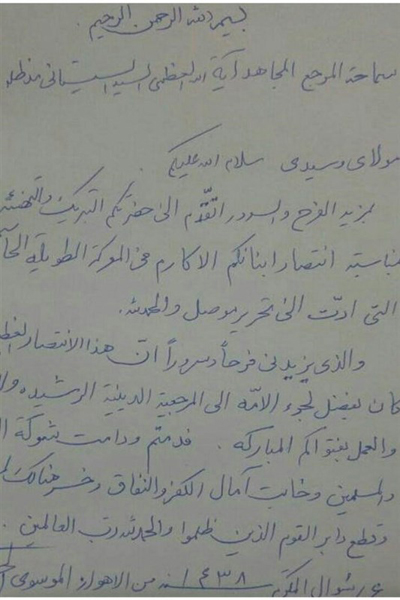 بسم الله الرحمن الرحيم.
سماحة المرجع المجاهد آية الله العظمى السيد السيستاني مد ظله
مولاي وسيدي سلام الله عليكم
بمزيد الفرح والسرور اتقدّم الى حضرتكم التبريك والتهنئة
بمناسبة انتصار ابنائكم الاكارم في المعركة الطويلة
التي ادّت الى تحرير موصل والحمدلله.
والذي يزيدني فرحاً وسروراً انّ هذا الانتصار العظيم
كان بفضل لجوء الامّه الى المرجعية الدينية الرشيده
والعمل بفتواكم المباركه. فدمتم ودامت شوكة
والمسلمين وخابت آمال الكفر والنفاق وخسر هنالك
وقطع دابر القوم الذين ظلموا والحمدلله رب العالمين.
شوال المكرّم ١٤٣٨ من الاهواز الموسوي